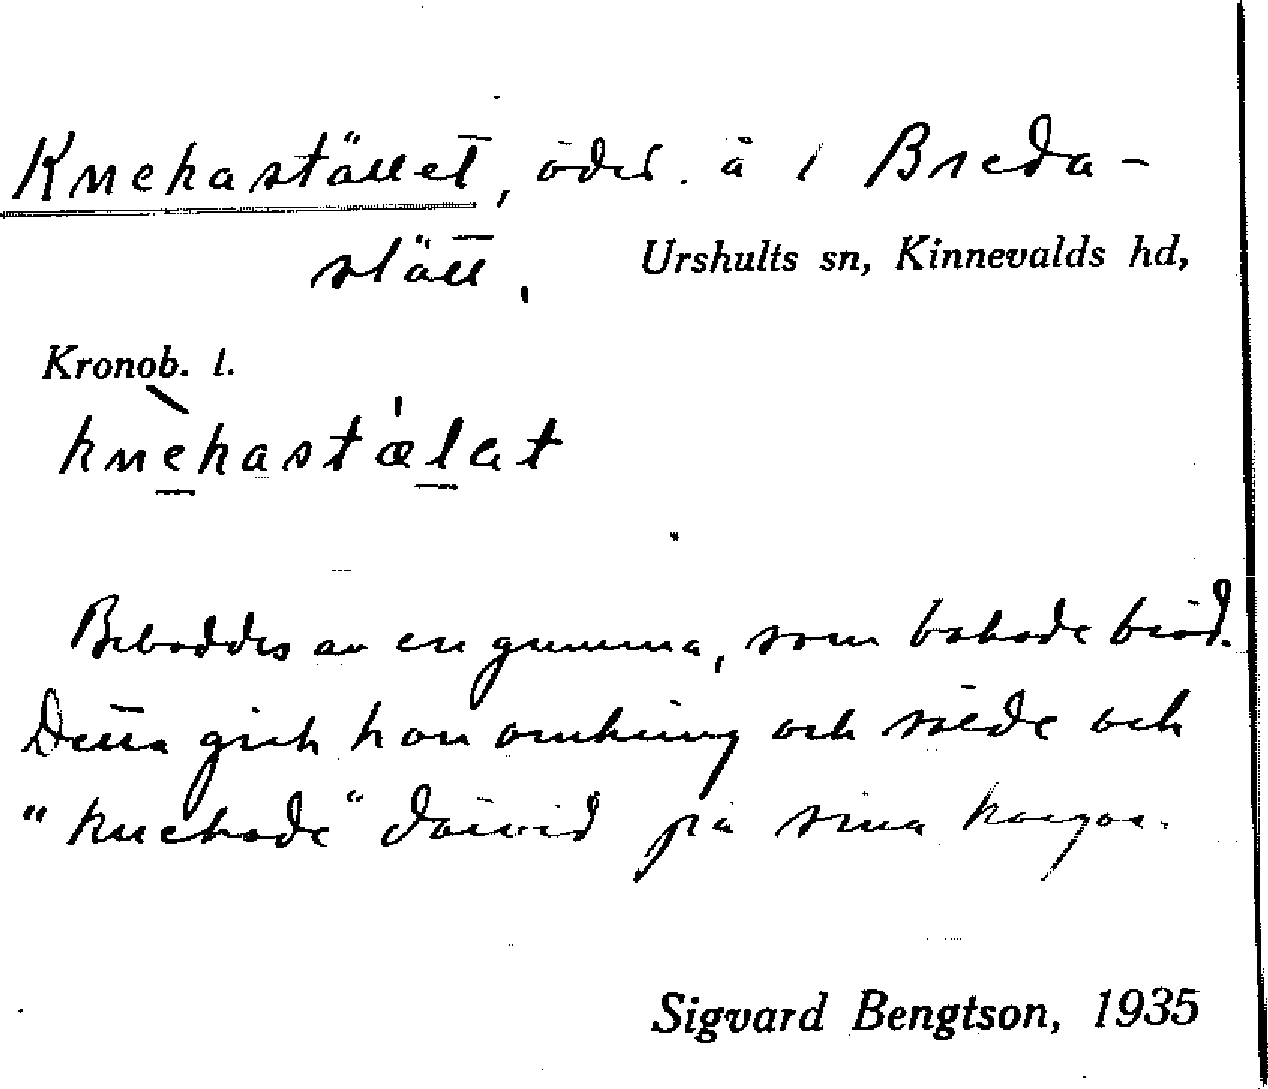 Knekastället, ödes. å i Breda-
ställ, Urshults sn, Kinnevalds hd,
Kronob. l.
knekastælat
Beboddes av en gumma, som bakade bröd.
Detta gick hon omkring och sålde och
"knekade" därvid på sina kargar.
Sigvard Bengtson, 1935